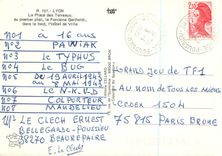 R. 101 - LYON
La Place des Terreaux,
au premier plan, la Fontaine Bartholdi,
dans le fond, l'Hôtel de Ville
N°1 à 16 ans
N°2 PAWIAK
N°3 LE TYPHUS
N°4 LE BUG
N°5 DE 19 AVRIL
AU 7 MAI 1943
N°6 LE N.K.V.D
N°7 COLPORTEUR
N°8 MANDELIEU
LE CLECH ERNEST
BELLEGARDE-POUSSIEU
38270 BEAUREPAIRE
E. Le Clech
2,20
GRANDS JEU DE TF1
AU NOM DE TOUS LES MIENS
CEDEX 1504
75815 PARIS BRUNE